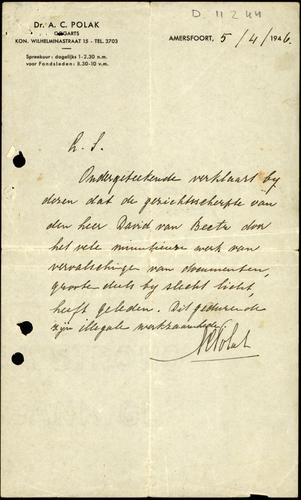 D 11244
Dr. A. C. POLAK
OOGARTS
KON. WILHELMINASTRAAT 15 - TEL. 3703
Spreekuur: dagelijks 1-2.30 n.m.
voor Fondsleden: 8.30-10 v.m.
AMERSFOORT, 5/4/1946.
L. S.
Ondergeteekende verklaart bij
dezen dat de gezichtsscherpte van
den heer David van door
het vele minutieuze werk van
vervalschingen van documenten,
groote deels bij slecht licht,
heeft geleden. Dit gedurende
zijn illegale werkzaamheden.
ACPolak